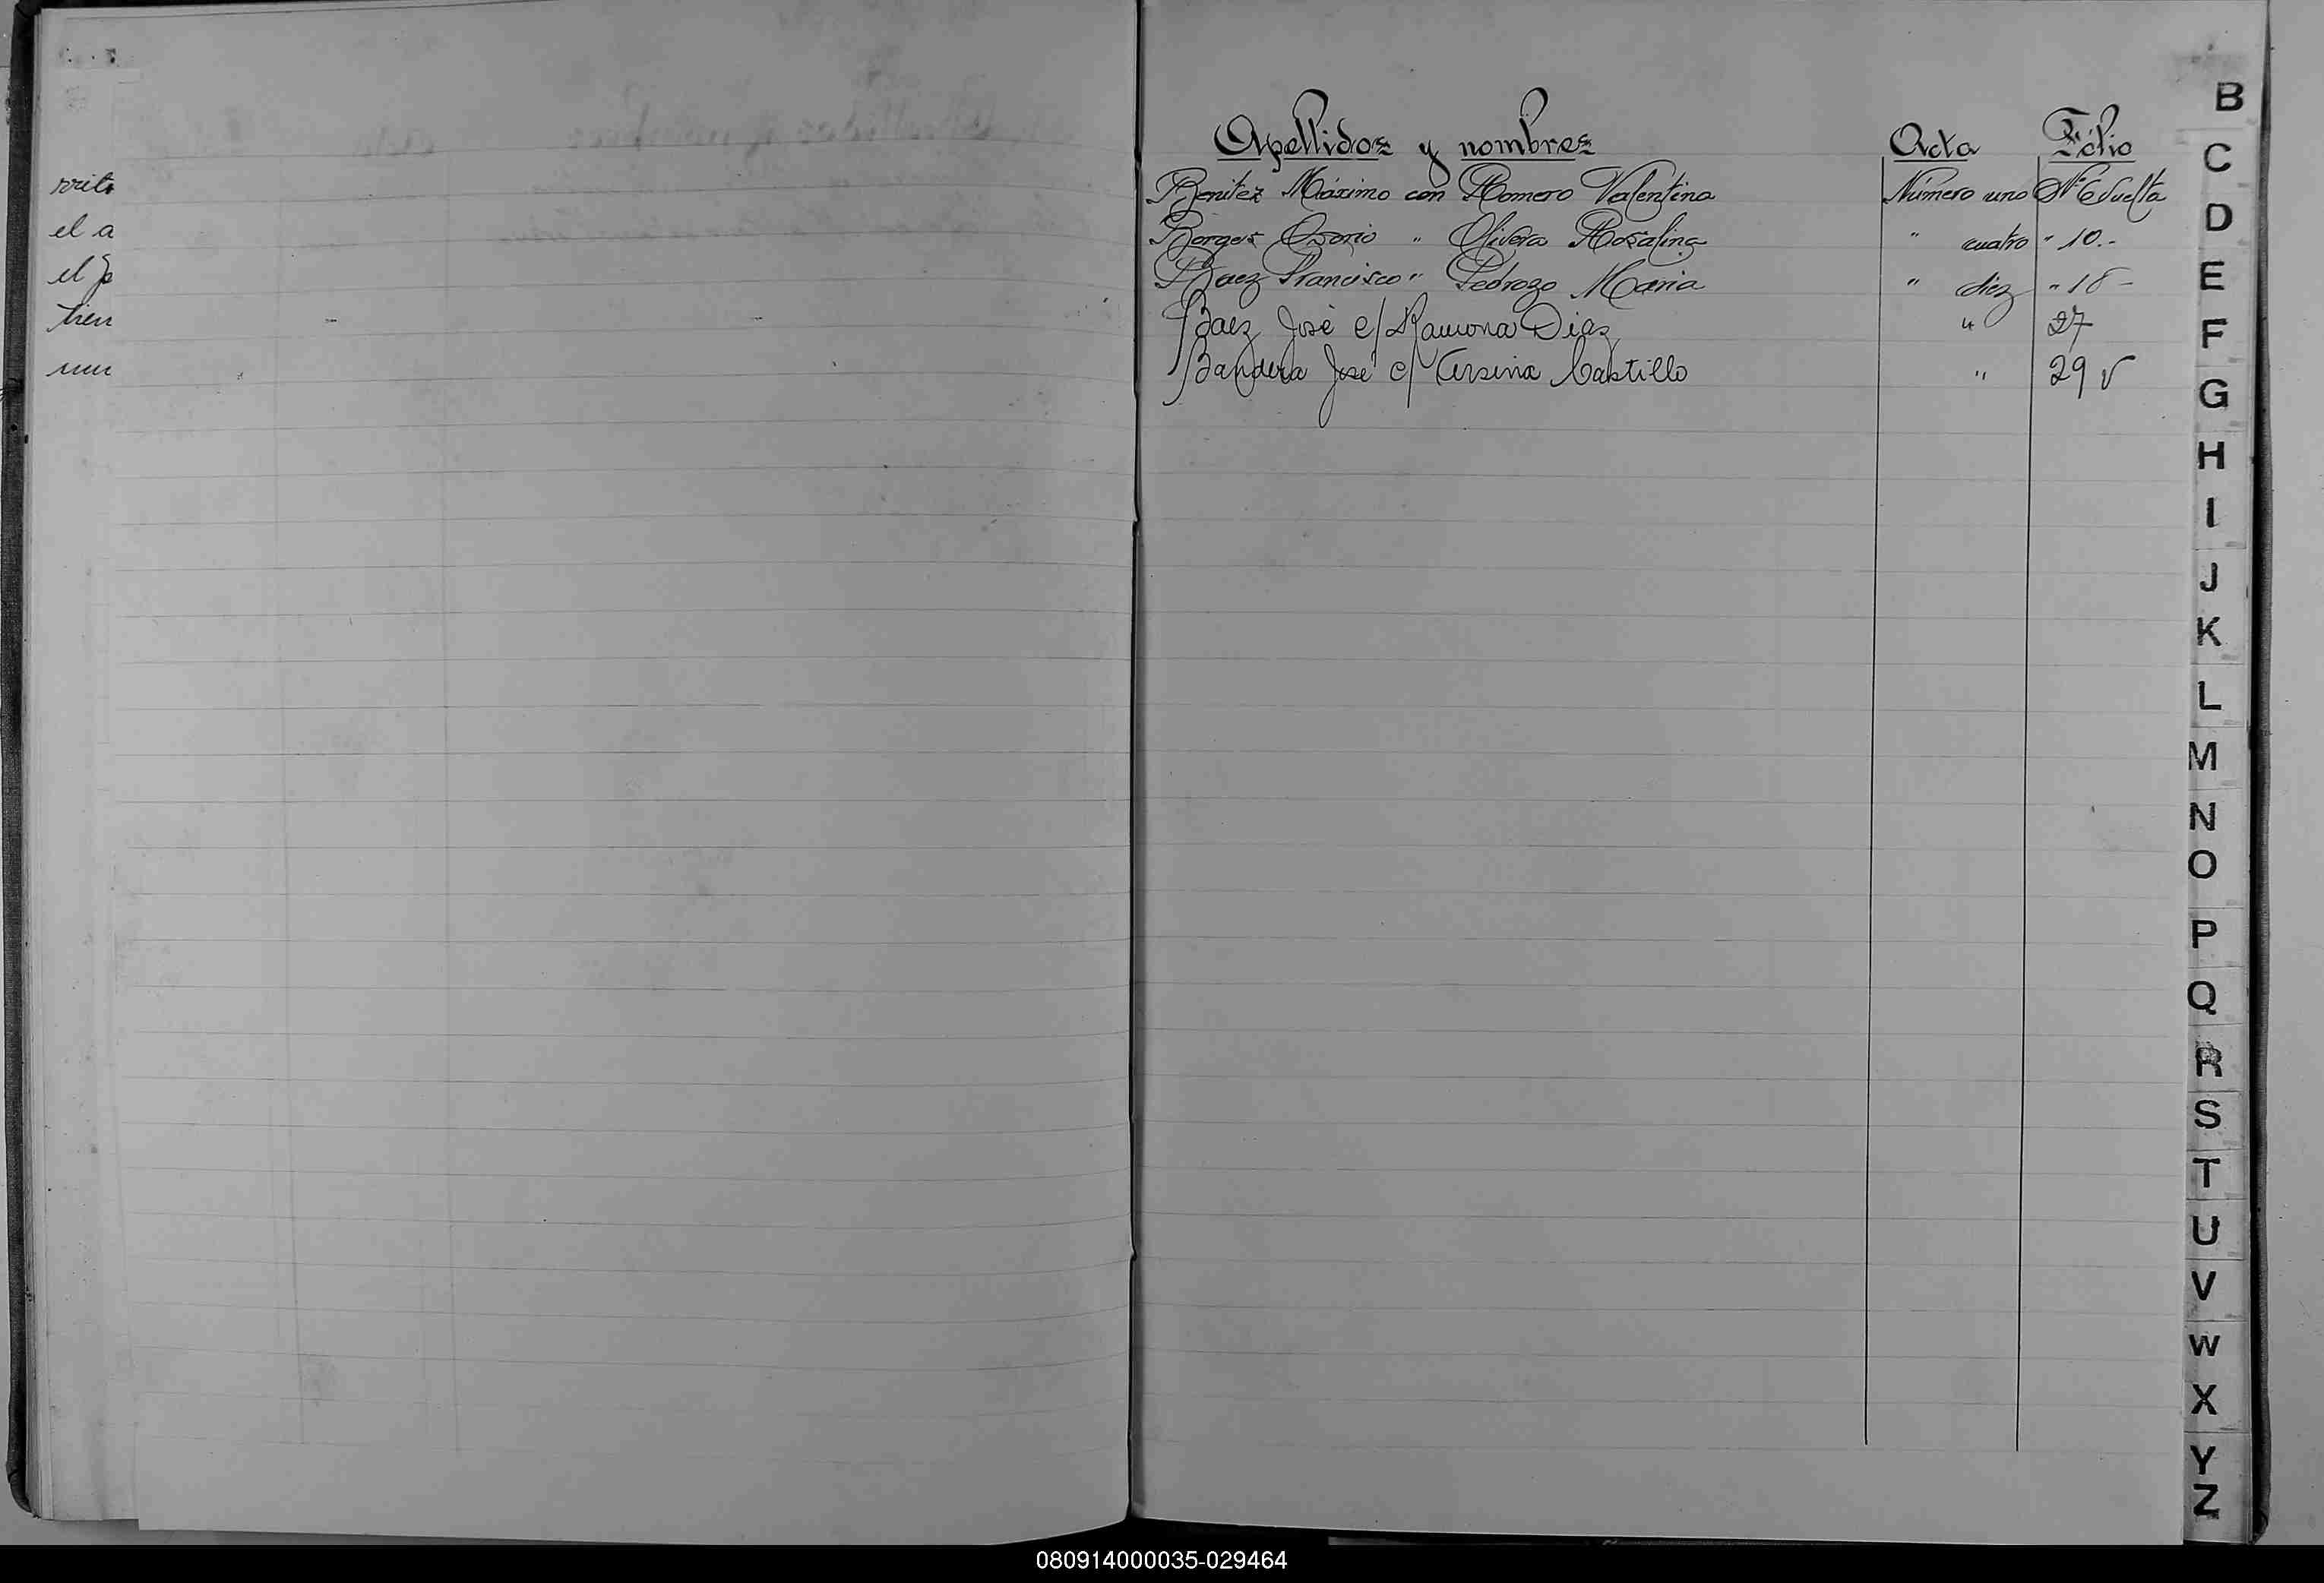 rrito
el a
el p
tien
mu
Apellidos y nombres Acta Fólio
Benitez Máximo con Romero Valentina Número uno Nº 6 vuelta
Borges Osorio " Olivera Rosalina " cuatro " 10.-
Baez Francisco " Pedrozo Maria " diez " 18 -
Baez José c/ Ramona Diaz " 27
Bandera José c/ Tersina Castillo " 29 v
B
C
D
E
F
G
H
I
J
K
L
M
N
O
P
Q
R
S
T
U
V
W
X
Y
Z
080914000035-029464